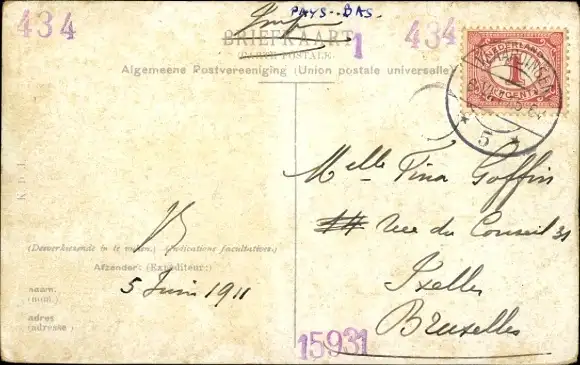 PAYS-BAS.
434
434
BRIEFKAART
1
(CARTE POSTALE)
Algemeene Postvereeniging (Union postale universelle)
NEDERLAND
1
CENT
5
Melle Tina Goffin
44 rue du Conseil 31
Ixelles
Bruxelles
(Desverkiezende in te vullen.) (Indications facultatives.)
Afzender: (Expéditeur:)
5 Juin 1911
naam:
(nom:)
adres
(adresse)
15931